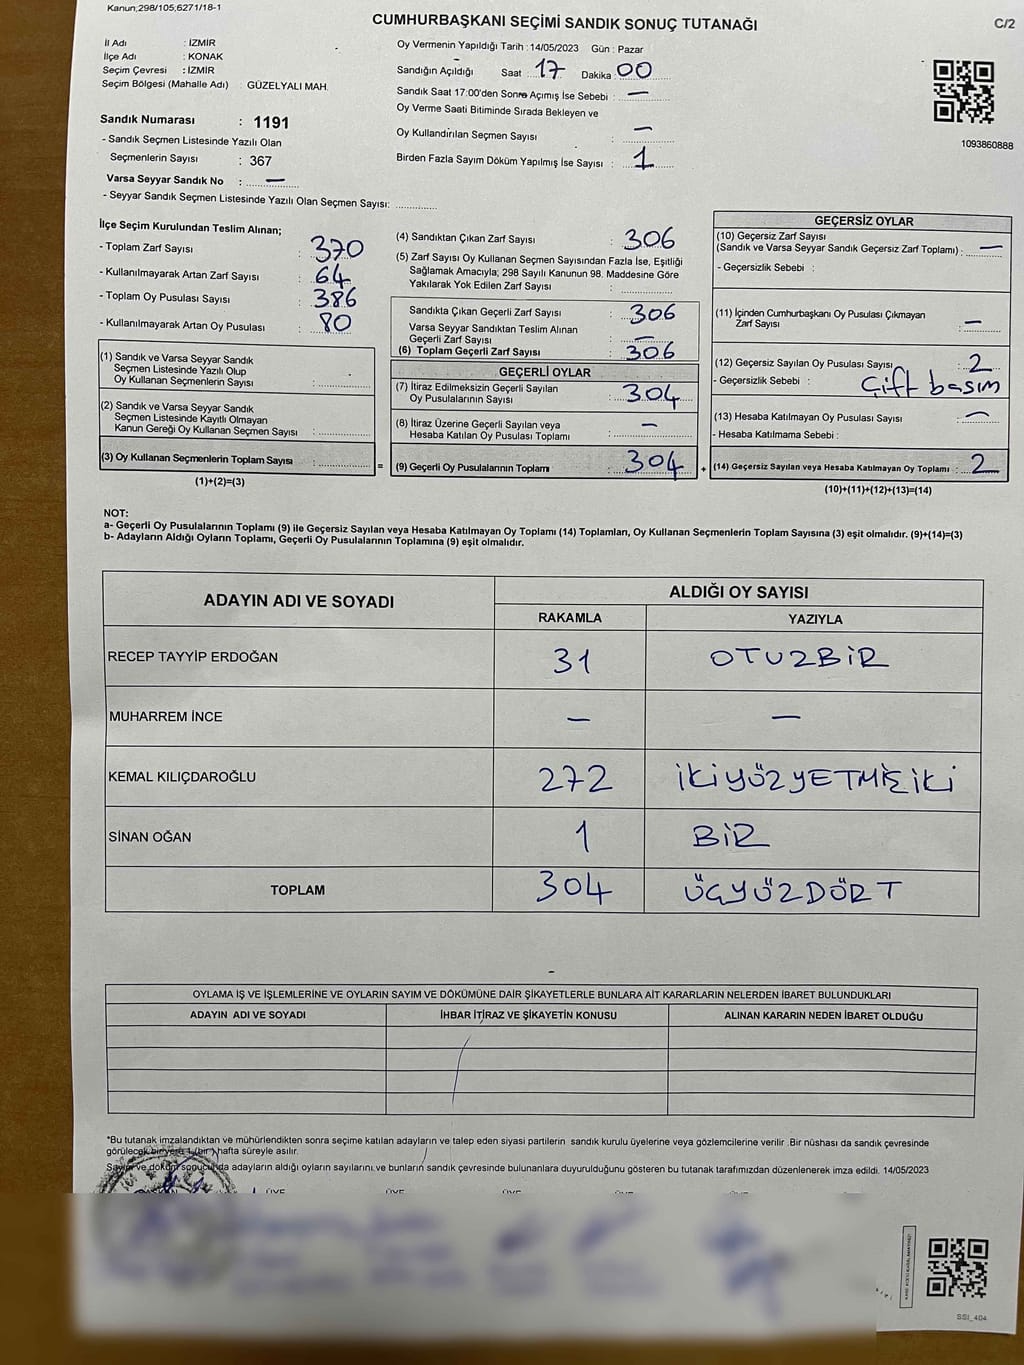 Kanun;298/105;6271/18-1
CUMHURBAŞKANI SEÇİMİ SANDIK SONUÇ TUTANAĞI
C/2
İl Adı : İZMİR
İlçe Adı : KONAK
Seçim Çevresi : İZMİR
Seçim Bölgesi (Mahalle Adı) : GÜZELYALI MAH.
Sandık Numarası : 1191
- Sandık Seçmen Listesinde Yazılı Olan
Seçmenlerin Sayısı : 367
Varsa Seyyar Sandık No : —
- Seyyar Sandık Seçmen Listesinde Yazılı Olan Seçmen Sayısı:
Oy Vermenin Yapıldığı Tarih : 14/05/2023 Gün : Pazar
Sandığın Açıldığı Saat : 17 Dakika : 00
Sandık Saat 17:00'den Sonra Açımış İse Sebebi : —
Oy Verme Saati Bitiminde Sırada Bekleyen ve
Oy Kullandırılan Seçmen Sayısı : —
Birden Fazla Sayım Döküm Yapılmış İse Sayısı : 1
1093860888
İlçe Seçim Kurulundan Teslim Alınan;
- Toplam Zarf Sayısı : 370
- Kullanılmayarak Artan Zarf Sayısı : 64
- Toplam Oy Pusulası Sayısı : 386
- Kullanılmayarak Artan Oy Pusulası : 80
(1) Sandık ve Varsa Seyyar Sandık
Seçmen Listesinde Yazılı Olup
Oy Kullanan Seçmenlerin Sayısı :
(2) Sandık ve Varsa Seyyar Sandık
Seçmen Listesinde Kayıtlı Olmayan
Kanun Gereği Oy Kullanan Seçmen Sayısı :
(3) Oy Kullanan Seçmenlerin Toplam Sayısı :
(1)+(2)=(3)
=
(4) Sandıktan Çıkan Zarf Sayısı : 306
(5) Zarf Sayısı Oy Kullanan Seçmen Sayısından Fazla İse, Eşitliği
Sağlamak Amacıyla; 298 Sayılı Kanunun 98. Maddesine Göre
Yakılarak Yok Edilen Zarf Sayısı :
Sandıkta Çıkan Geçerli Zarf Sayısı : 306
Varsa Seyyar Sandıktan Teslim Alınan
Geçerli Zarf Sayısı : —
(6) Toplam Geçerli Zarf Sayısı : 306
GEÇERLİ OYLAR
(7) İtiraz Edilmeksizin Geçerli Sayılan
Oy Pusulalarının Sayısı : 304
(8) İtiraz Üzerine Geçerli Sayılan veya
Hesaba Katılan Oy Pusulası Toplamı : —
(9) Geçerli Oy Pusulalarının Toplamı : 304
+
GEÇERSİZ OYLAR
(10) Geçersiz Zarf Sayısı
(Sandık ve Varsa Seyyar Sandık Geçersiz Zarf Toplamı) : —
- Geçersizlik Sebebi :
(11) İçinden Cumhurbaşkanı Oy Pusulası Çıkmayan
Zarf Sayısı : —
(12) Geçersiz Sayılan Oy Pusulası Sayısı : 2
- Geçersizlik Sebebi : Çift basım
(13) Hesaba Katılmayan Oy Pusulası Sayısı : —
- Hesaba Katılmama Sebebi :
(14) Geçersiz Sayılan veya Hesaba Katılmayan Oy Toplamı : 2
(10)+(11)+(12)+(13)=(14)
NOT:
a- Geçerli Oy Pusulalarının Toplamı (9) ile Geçersiz Sayılan veya Hesaba Katılmayan Oy Toplamı (14) Toplamları, Oy Kullanan Seçmenlerin Toplam Sayısına (3) eşit olmalıdır. (9)+(14)=(3)
b- Adayların Aldığı Oyların Toplamı, Geçerli Oy Pusulalarının Toplamına (9) eşit olmalıdır.
ADAYIN ADI VE SOYADI
ALDIĞI OY SAYISI
RAKAMLA YAZIYLA
RECEP TAYYİP ERDOĞAN 31 OTUZBİR
MUHARREM İNCE — —
KEMAL KILIÇDAROĞLU 272 İKİYÜZYETMİŞİKİ
SİNAN OĞAN 1 BİR
TOPLAM 304 ÜÇYÜZDÖRT
OYLAMA İŞ VE İŞLEMLERİNE VE OYLARIN SAYIM VE DÖKÜMÜNE DAİR ŞİKAYETLERLE BUNLARA AİT KARARLARIN NELERDEN İBARET BULUNDUKLARI
ADAYIN ADI VE SOYADI İHBAR İTİRAZ VE ŞİKAYETİN KONUSU ALINAN KARARIN NEDEN İBARET OLDUĞU
*Bu tutanak imzalandıktan ve mühürlendikten sonra seçime katılan adayların ve talep eden siyasi partilerin sandık kurulu üyelerine veya gözlemcilerine verilir .Bir nüshası da sandık çevresinde
görülecek bir yere 1 (bir ) hafta süreyle asılır.
Sayım ve döküm sonucunda adayların aldığı oyların sayılarını ve bunların sandık çevresinde bulunanlara duyurulduğunu gösteren bu tutanak tarafımızdan düzenlenerek imza edildi. 14/05/2023
BAŞKAN ÜYE ÜYE ÜYE ÜYE ÜYE ÜYE
SSI_404